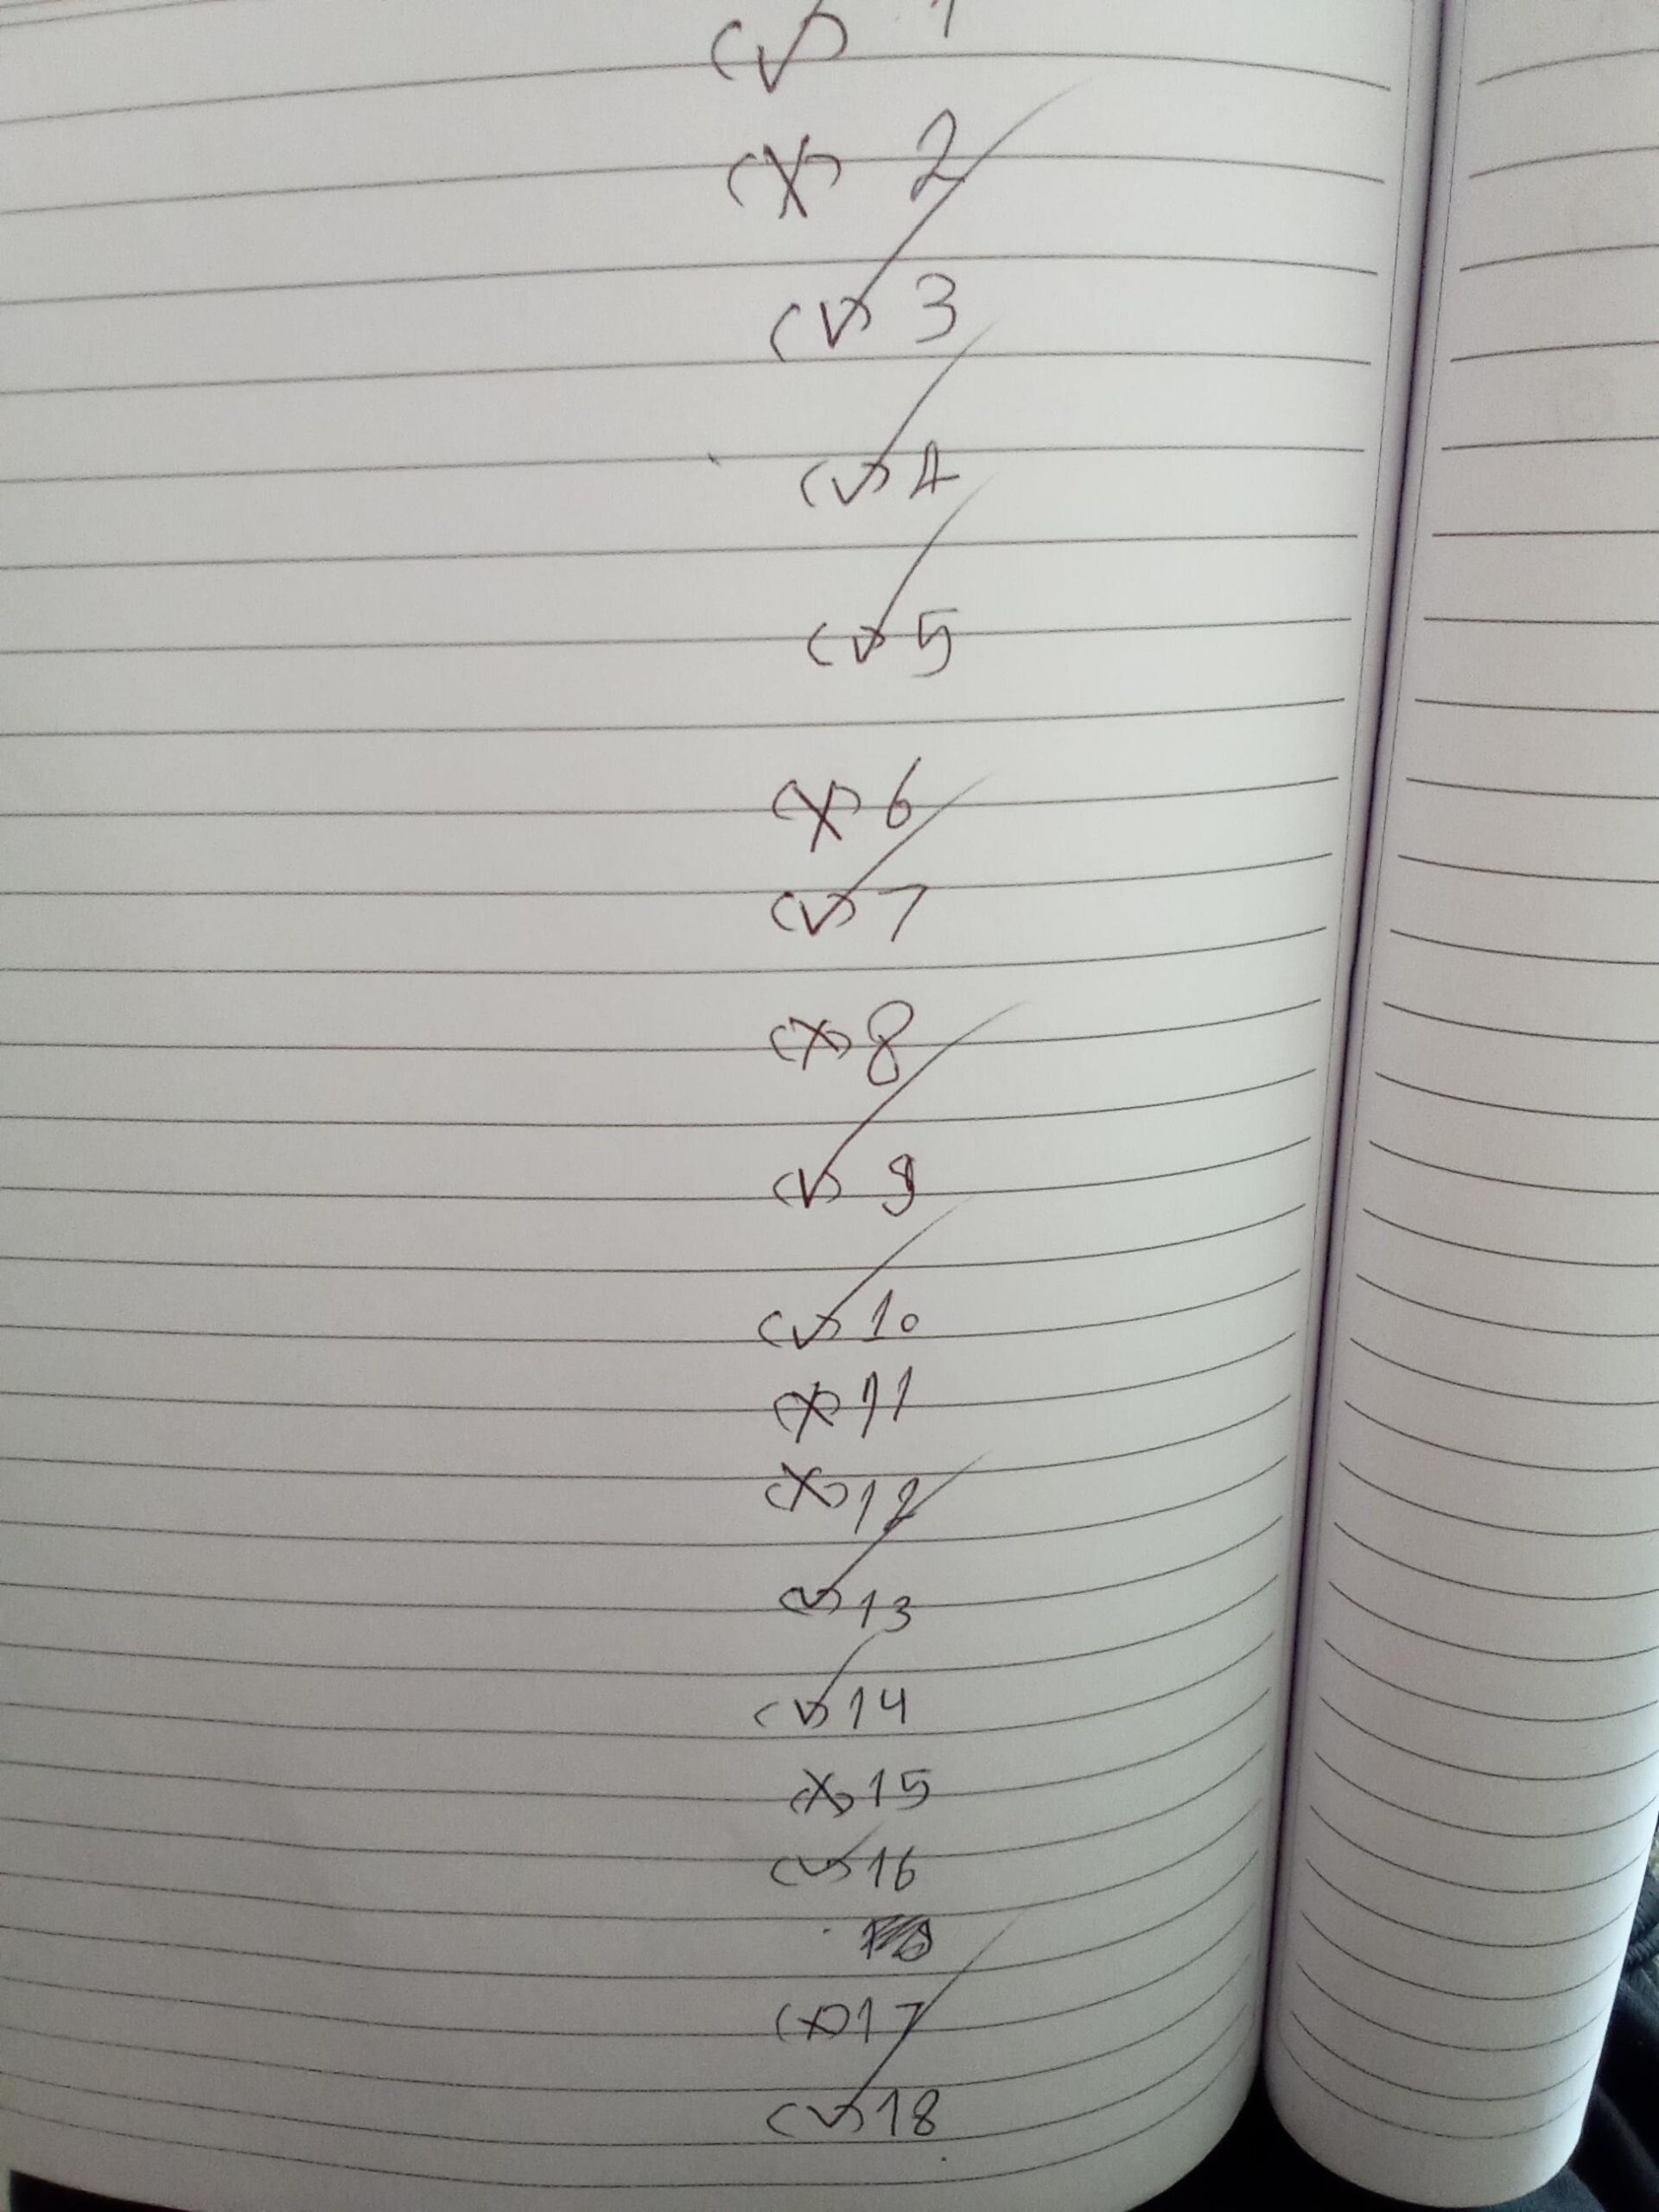 (✓) 1
(X) 2
(✓) 3
(✓) 4
(✓) 5
(X) 6
(✓) 7
(X) 8
(✓) 9
(✓) 10
(X) 11
(X) 12
(✓) 13
(✓) 14
(X) 15
(✓) 16
(X) 17
(✓) 18